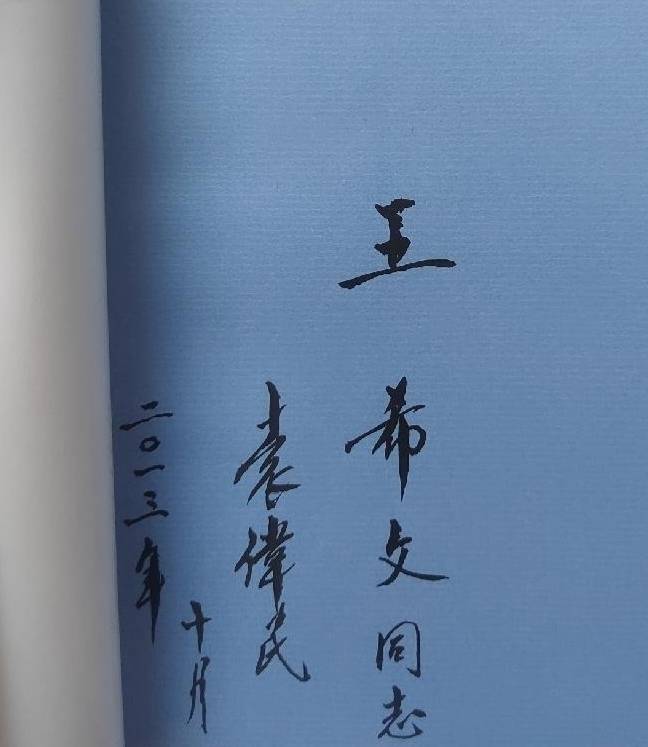 王希文同志
袁偉民
二〇一三年
十月